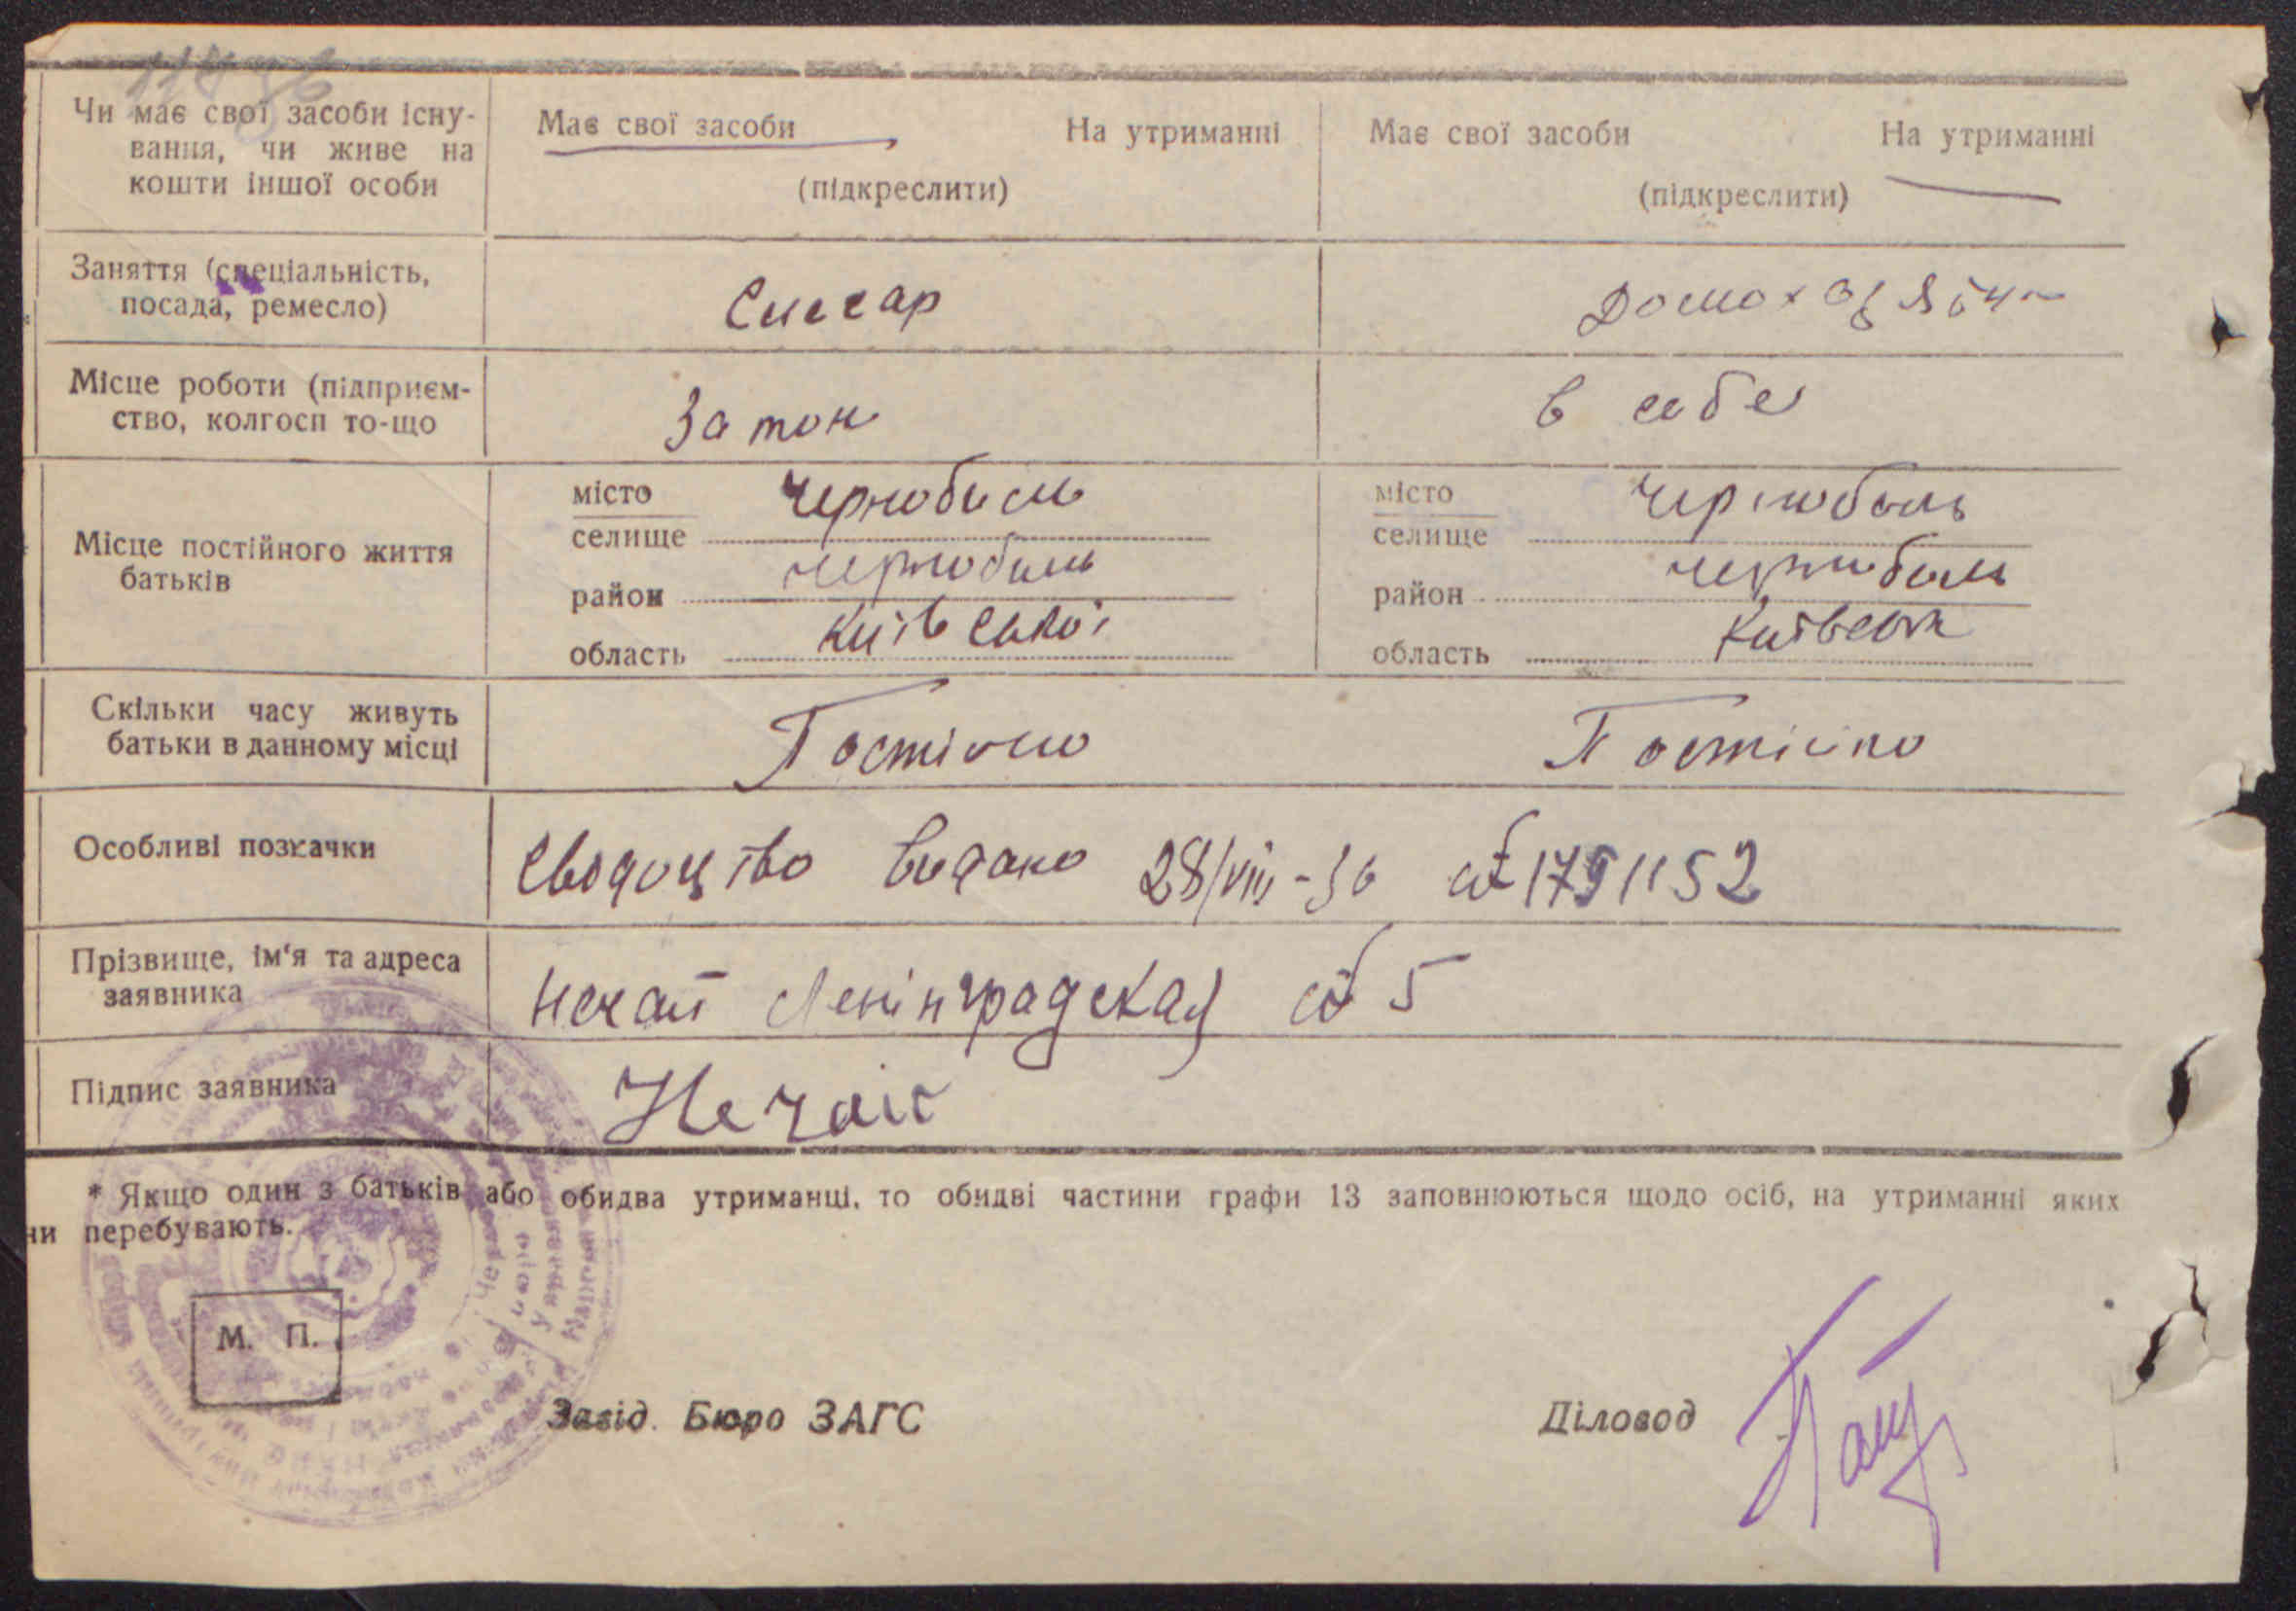 Чи має свої засоби існу-
вання, чи живе на
кошти іншої особи
Має свої засоби На утриманні
(підкреслити)
Має свої засоби На утриманні
(підкреслити)
Заняття (спеціальність,
посада, ремесло)
Слесар
Домохозяйн
Місце роботи (підприєм-
ство, колгосп то-що
Затон
в себе
Місце постійного життя
батьків
місто Чернобиль
селище
район Чернобиль
область Київської
місто Чернобиль
селище
район Чернобиль
область Київськ
Скільки часу живуть
батьки в данному місці
Постійно
Постійно
Особливі позначки
Сводоцтво видано 28/VIII-36 № 1791152
Прізвище, ім'я та адреса
заявника
Нечай Ленінградская № 5
Підпис заявника
Нечай
* Якщо один з батьків або обидва утриманці, то обидві частини графи 13 заповнюються щодо осіб, на утриманні яких
ни перебувають.
М. П.
Завід. Бюро ЗАГС
Діловод